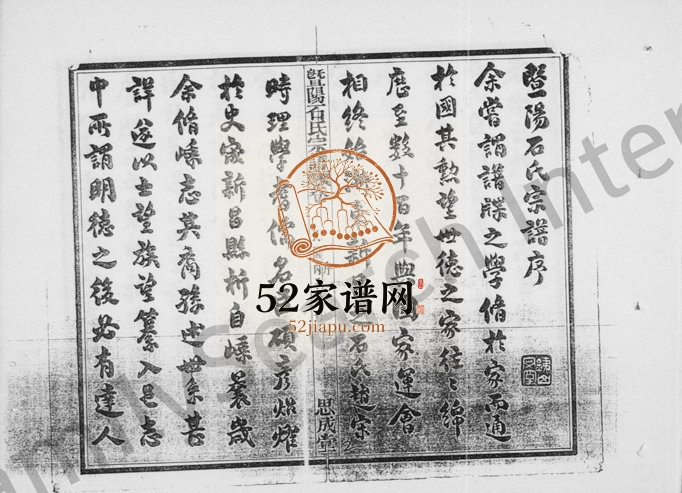 暨陽石氏宗譜序
余嘗謂譜牒之學脩於家而通
於國其勲望世德之家往〻綿
歷至數十百年與 家運會
相終始 石氏趙宋
時理學耆儒名 碩彥焜燿
於史宬新昌縣析自嵊曩歲
余脩嵊志其裔孫述世系甚
詳遂以士望族望纂入邑志
中所謂明德之後必有達人
暨陽石氏宗譜
思成堂
52家谱网
52jiapu.com